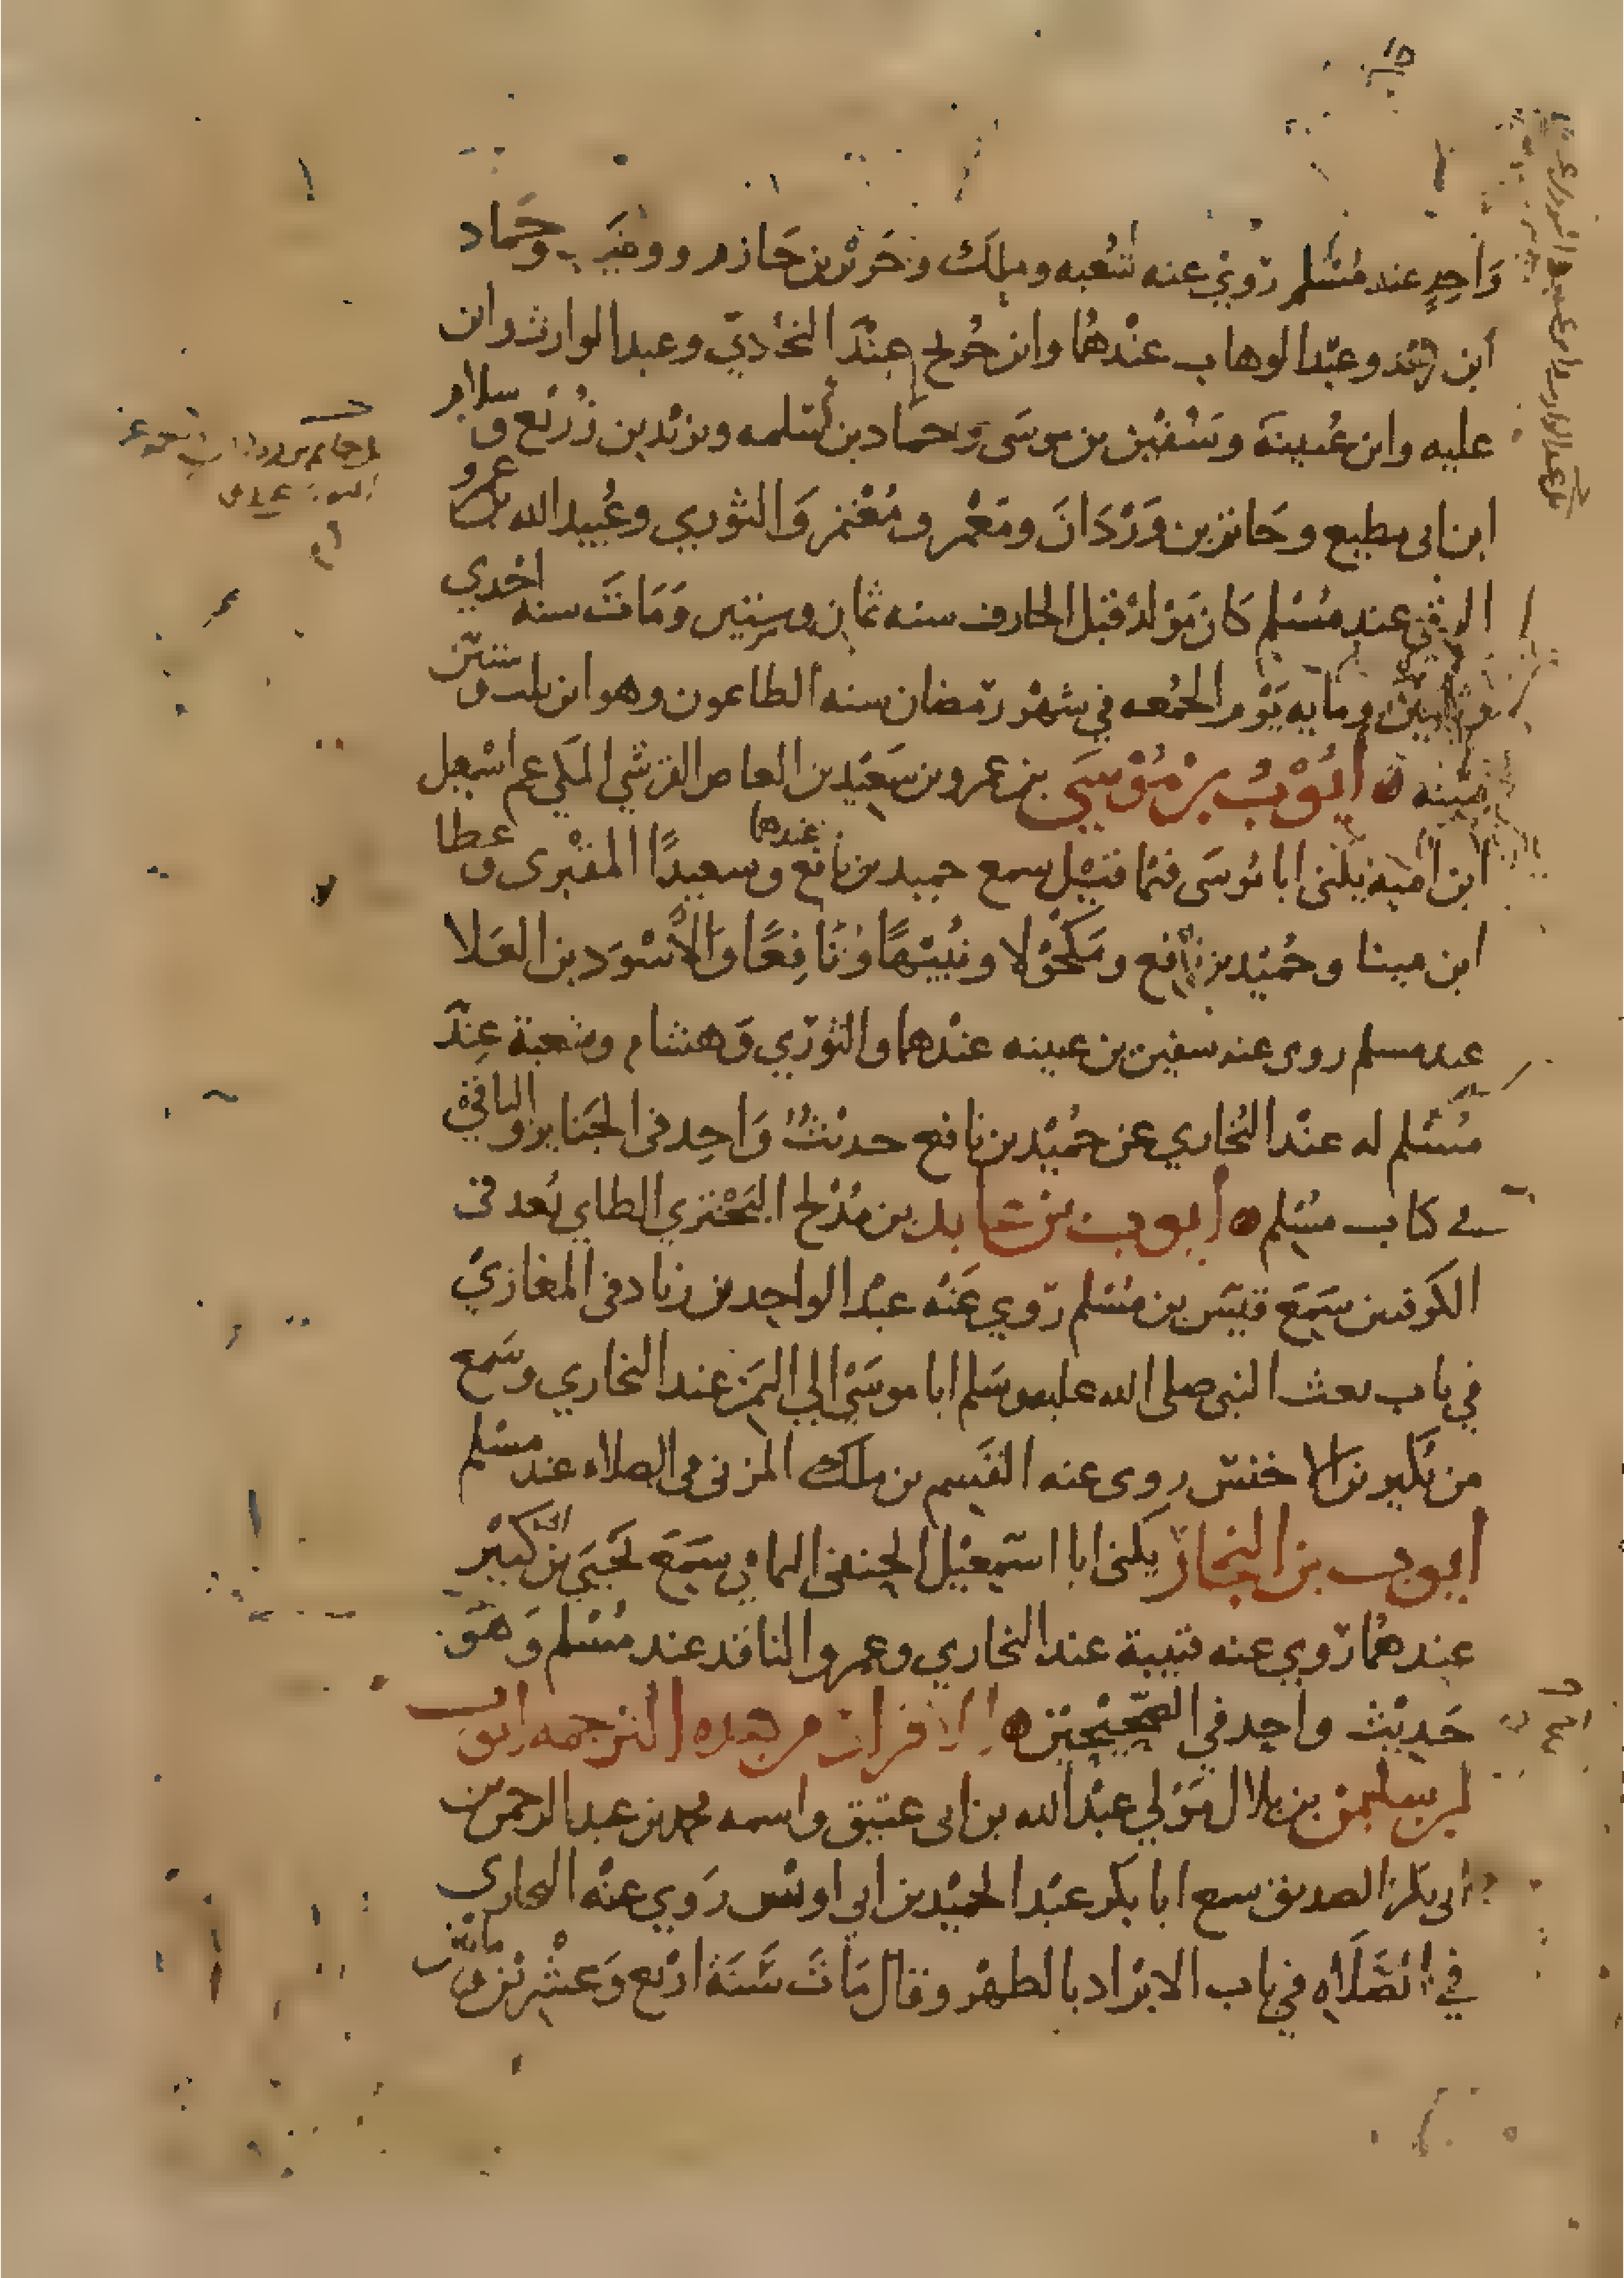 وَاحِدٍ عند مُسْلم رَوَيْ عنه شعبه وملك وجَرير بن حَازم ووهَيب وحَماد
ابن زيد وعبْد الوهاب عندْهُما وابن جُريح عِنْدَ البخاديّ وعبد الوارث وابن
عليه وابن عُيينَة وسُفيْن بن موسَى وحماد بن سَلمه ويزيْد بن زُرَيْع وسلام
ابن ابى مطيع وحَاتم بن وَرْدَانَ ومَعْمر ومُعْتمر وَالثوري وعُبيد الله بن عمرو
الرقى عند مُسْلم كَان مَوْلدْ قبْل الجارف سنه ثمان وستين وَمَاتَ سنه احْدي
وثلثين ومايه يَوْم الجمُعه في شهْر رَمضان سنه الطاعون وهو ابن ثلث وستين
سَنه ه ايُوْبُ بن مُوْسَي بن عمرو بن سَعِيْد بن العاص القرشي المكي عم اسْمعيل
ابن اميه يكنى ابا موُسَى فيما قيْل سمع حميد بن نافع عندهما وسعيدًا المقبْرى وعطا
ابن مينا وحُميْد بن نافع ومَكْحُوْلا ونُبيْهًا وَنَافِعًا وَالأسْوَد بن العَلا
عند مسلم روى عنه سفين بن عيينه عندْهما والثورّي وَهشام وشعبة عِندَ
مُسْلم له عندْ البُخاري عن حُميْد بن نافع حديْثٌ وَاحِد فى الجَنايز والباقيْ
في كتاب مسْلم ه أيوب بن عايد بن مُدْلج البَحْتري الطاي يُعد في
الكوفيين سَمِعَ قيسَ بن مُسْلم رَوي عَنْه عبْد الواحد بن زياد في المغازيَ
في باب بعث النبي صلى الله عليه وسَلم ابا موسَىْ الي اليَمَن عند البخاري وسَمع
من بُكير بن الاخنسَ روى عنه القَسِم بن ملك المزنى في الصلاه عند مسْلم
ايوب بن النجار يكنى ابا اسمَعيْل الحِنفى اليمامي سَمِعَ يَحْيَي بن ابى كثيْر
عِندهُما رَوي عنه قتيبة عند البخاري وعمرو الناقد عند مُسْلم وَهُوَ
حَديْث واحِد في الصّحِيْحيْن ه الافراد من هذه الترجمه ايوب
بن سليمن بن بلال مَوْلي عبْد الله بن ابى عتيق واسمه محمد بن عبد الرحمن بن
ابى بكر الصديق سمع ابا بكر عبْد الحميْد بن ابي اويْس رَوي عنْه البخاري
في الصَّلاه في باب الابرْاد بالظهْر وقال مَاتَ سَنَة ارْبع وَعشْرين ومائتين